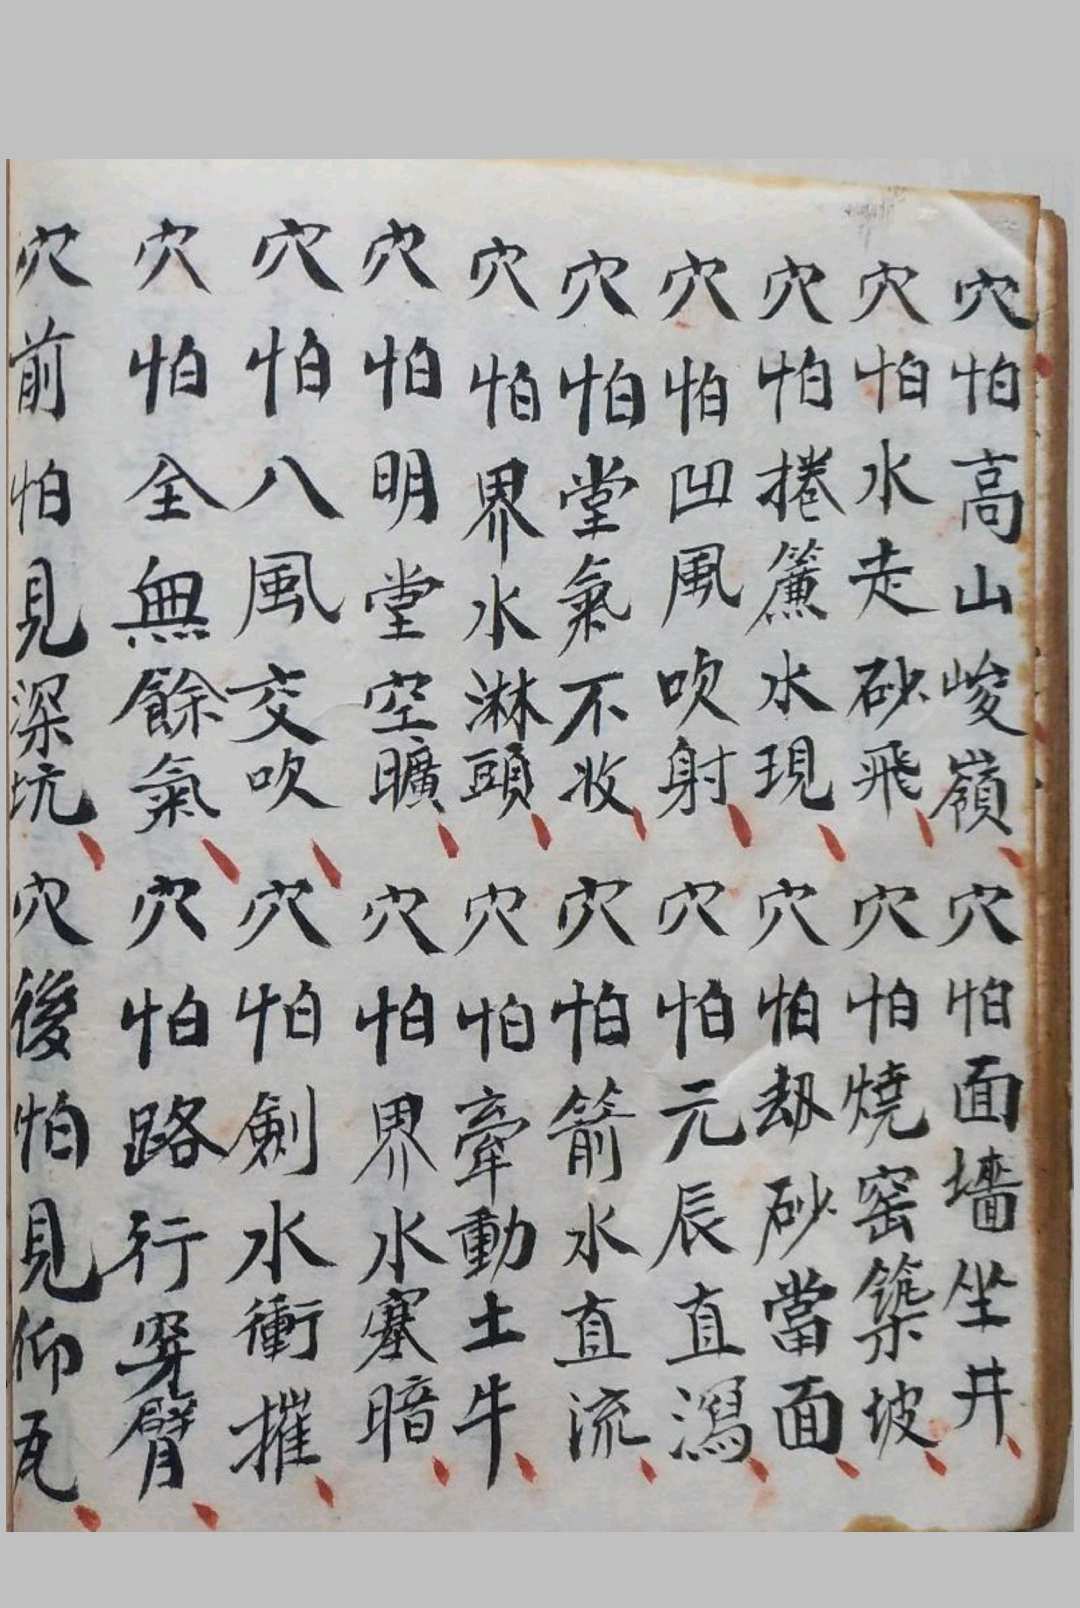 穴怕高山峻嶺穴怕面墻坐井
穴怕水走砂飛穴怕燒窑築坡
穴怕捲簾水現穴怕刼砂當面
穴怕凹風吹射穴怕元辰直瀉
穴怕堂氣不收穴怕箭水直流
穴怕界水淋頭穴怕牽動土牛
穴怕明堂空曠穴怕界水塞暗
穴怕八風交吹穴怕劍水衝摧
穴怕全無餘氣穴怕路行穿臂
穴前怕見深坑穴後怕見仰瓦